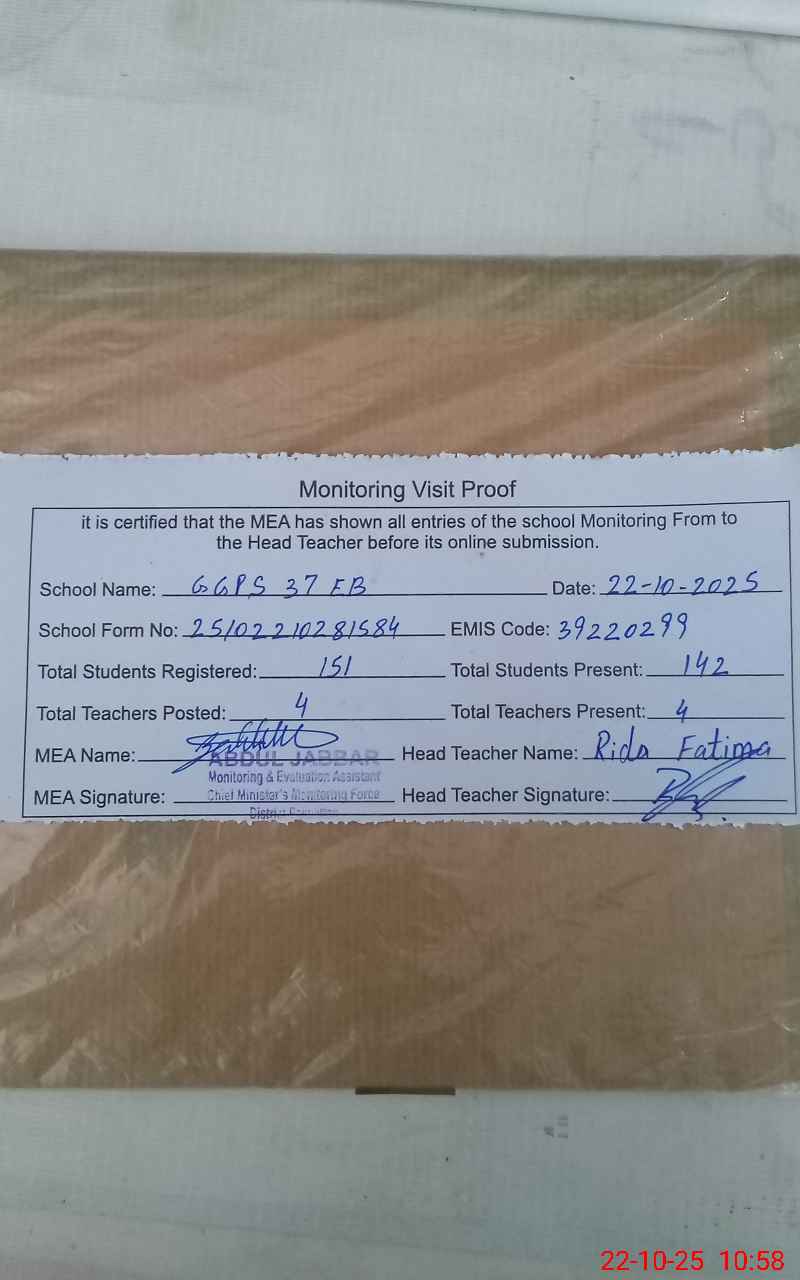 Monitoring Visit Proof
it is certified that the MEA has shown all entries of the school Monitoring From to
the Head Teacher before its online submission.
School Name: GGPS 37 EB Date: 22-10-2025
School Form No: 25102210281584 EMIS Code: 39220299
Total Students Registered: 151 Total Students Present: 142
Total Teachers Posted: 4 Total Teachers Present: 4
MEA Name: ABDUL JABBAR Head Teacher Name: Rida Fatima
Monitoring & Evaluation Assistant
MEA Signature: Chief Minister's Monitoring Force Head Teacher Signature:
District
22-10-25 10:58